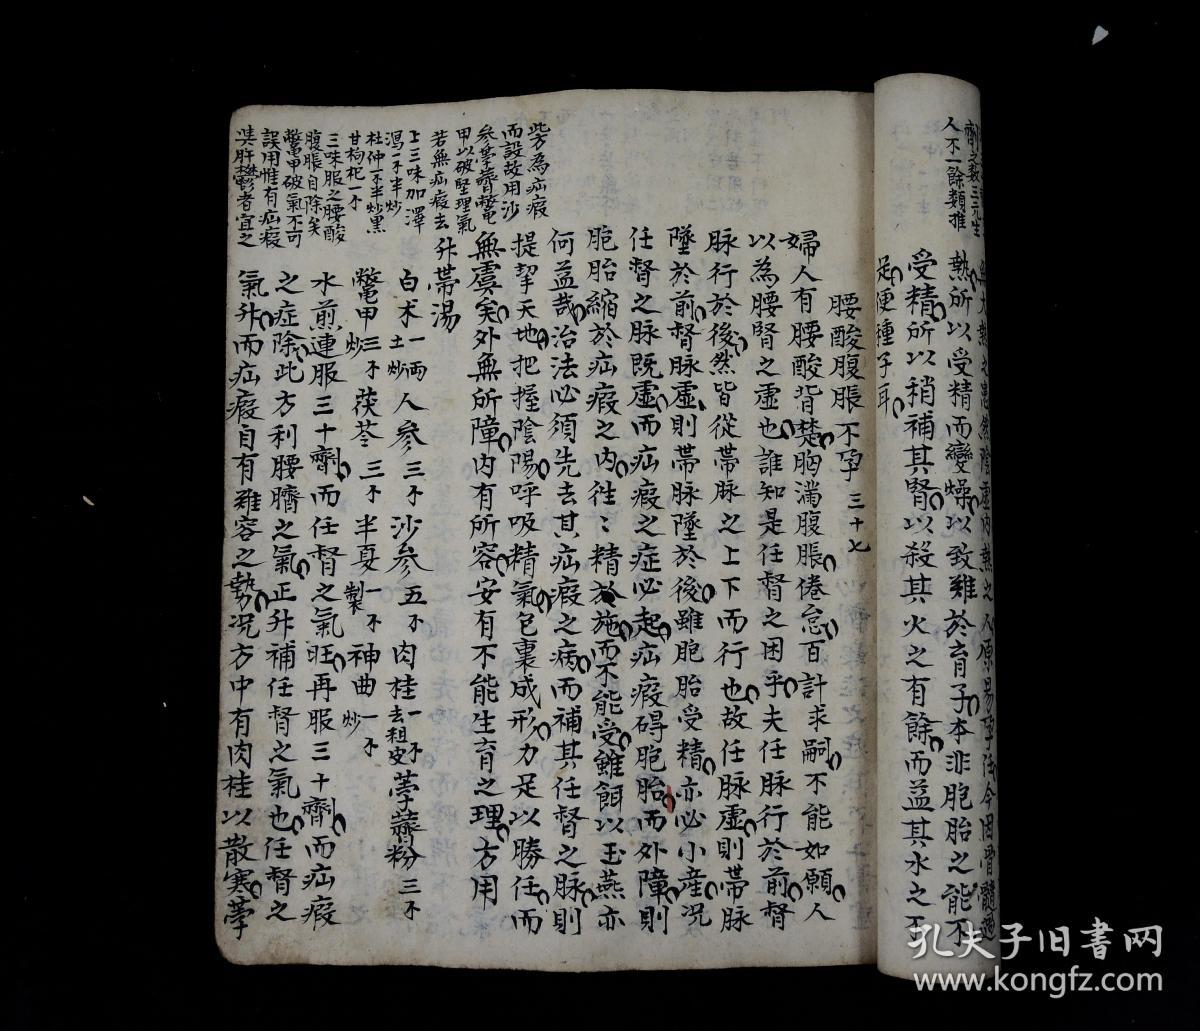 濟之數三三先生
人不一餘類推
無大熱之患然陰虛內熱之人原易孕任今因骨髓過
熱所以受精而變燥以致難於育子本非胞胎之能不
受精所以稍補其腎以殺其火之有餘而益其水之不
足便種子耳
腰酸腹脹不孕 三十七
婦人有腰酸背楚胸滿腹脹倦怠百計求嗣不能如願人
以為腰腎之虛也誰知是任督之困乎夫任脉行於前督
脉行於後然皆從帶脉之上下而行也故任脉虛則帶脉
墜於前督脉虛則帶脉墜於後雖胞胎受精亦必小產况
任督之脉既虛而疝瘕之症必起疝瘕碍胞胎而外障則
胞胎縮於疝瘕之內徃〻精於施而不能受雖餌以玉燕亦
何益哉治法必須先去其疝瘕之病而補其任督之脉則
提挈天地把握陰陽呼吸精氣包裏成形力足以勝任而
無虞矣外無所障內有所容安有不能生育之理方用
升帶湯
白术一兩土炒人參三不沙參五不肉桂一不去粗皮荸薺粉三不
鱉甲三不炒茯苓三不半夏一不製神曲一不炒
水煎連服三十劑而任督之氣旺再服三十劑而疝瘕
之症除此方利腰臍之氣正升補任督之氣也任督之
氣升而疝瘕自有難容之勢况方中有肉桂以散寒荸
些方為疝瘕
而設故用沙
參荸薺鱉
甲以破堅理氣
若無疝瘕去
上三味加澤
瀉一不半炒
杜仲一不半炒黑
甘枸杞一不
三味服之腰酸
腹脹自除矣
鱉甲破氣不可
誤用惟有疝瘕
與肝鬱者宜之
孔夫子旧書网
www.kongfz.com